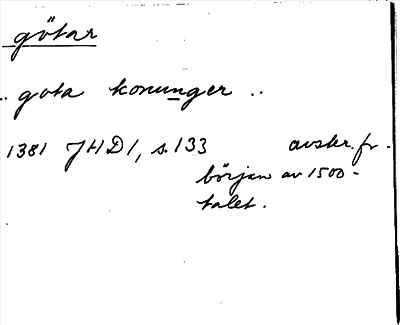 götar
.. gota konunger ..
1381 JHD1, s. 133 avskr. fr.
början av 1500-
talet.